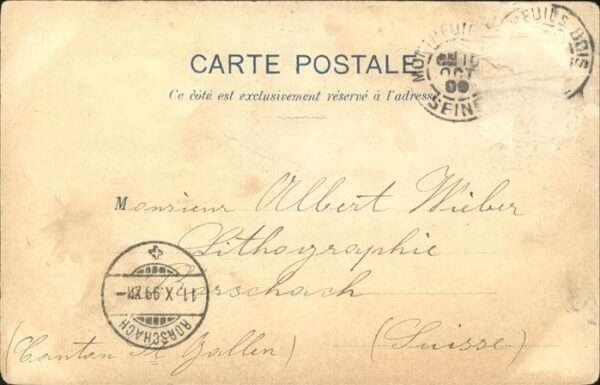 CARTE POSTALE
Ce côté est exclusivement réservé à l'adresse
MONTREUIL
OCT
99
SEINE
S BOIS
Monsieur Albert Wieber
Lithographie
Rorschach
(Canton St Gallen) (Suisse)
11.X.99.XII
RORSCHACH